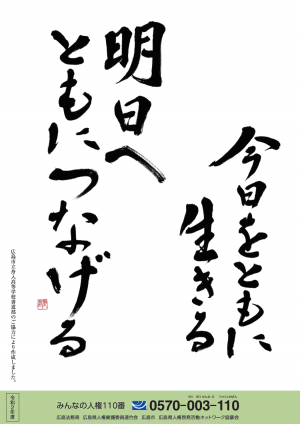 今日をともに
生きる
明日へ
ともにつなげる
広島市立舟入高等学校書道部のご協力により作成しました。
令和2年度
みんなの人権110番
0570-003-110
広島法務局 広島県人権擁護委員連合会 広島市 広島県人権啓発活動ネットワーク協議会